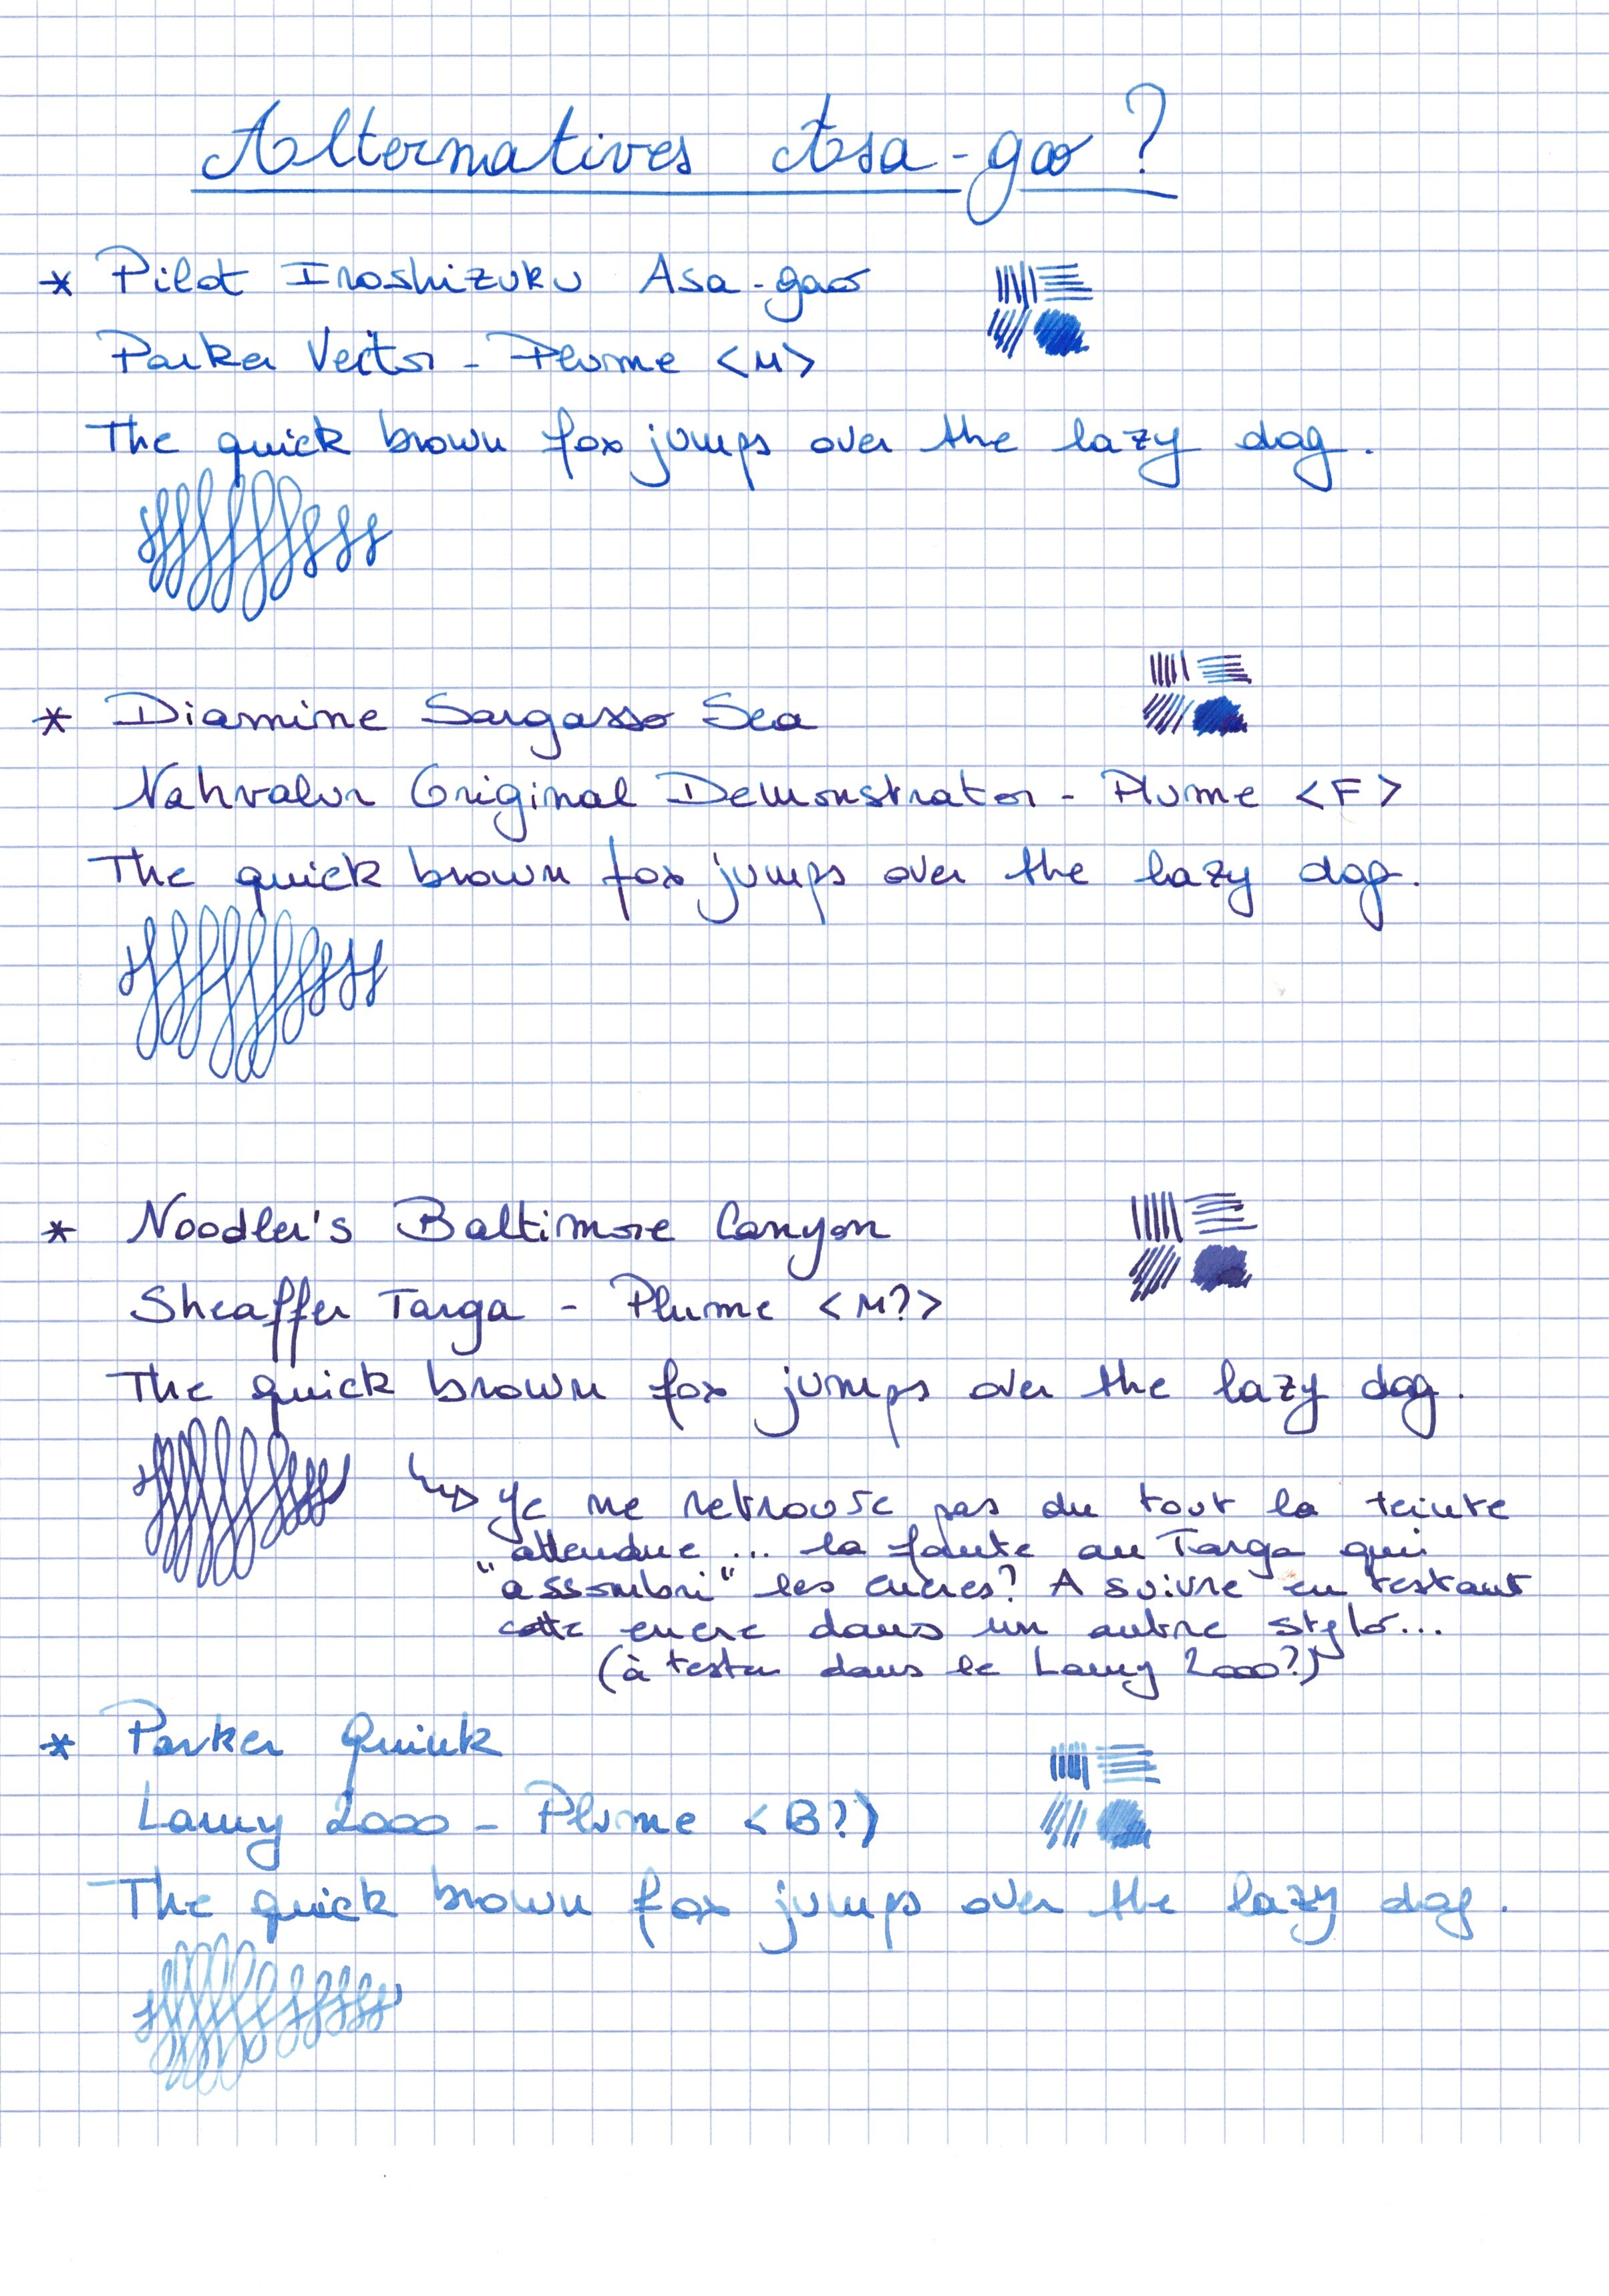 Alternatives Asa-gao ?
* Pilot Iroshizuku Asa-gao
Parker Vector - Plume <M>
The quick brown fox jumps over the lazy dog.
* Diamine Sargasso Sea
Nahvalur Original Demonstrator - Plume <F>
The quick brown fox jumps over the lazy dog.
* Noodler's Baltimore Canyon
Sheaffer Targa - Plume <M?>
The quick brown fox jumps over the lazy dog.
↳ Je ne retrouve pas du tout la teinte
attendue ... la faute au Targa qui
"assombri" les encres? A suivre en testant
cette encre dans un autre stylo...
(à tester dans le Lamy 2000?)
* Parker Quink
Lamy 2000 - Plume <B?>
The quick brown fox jumps over the lazy dog.